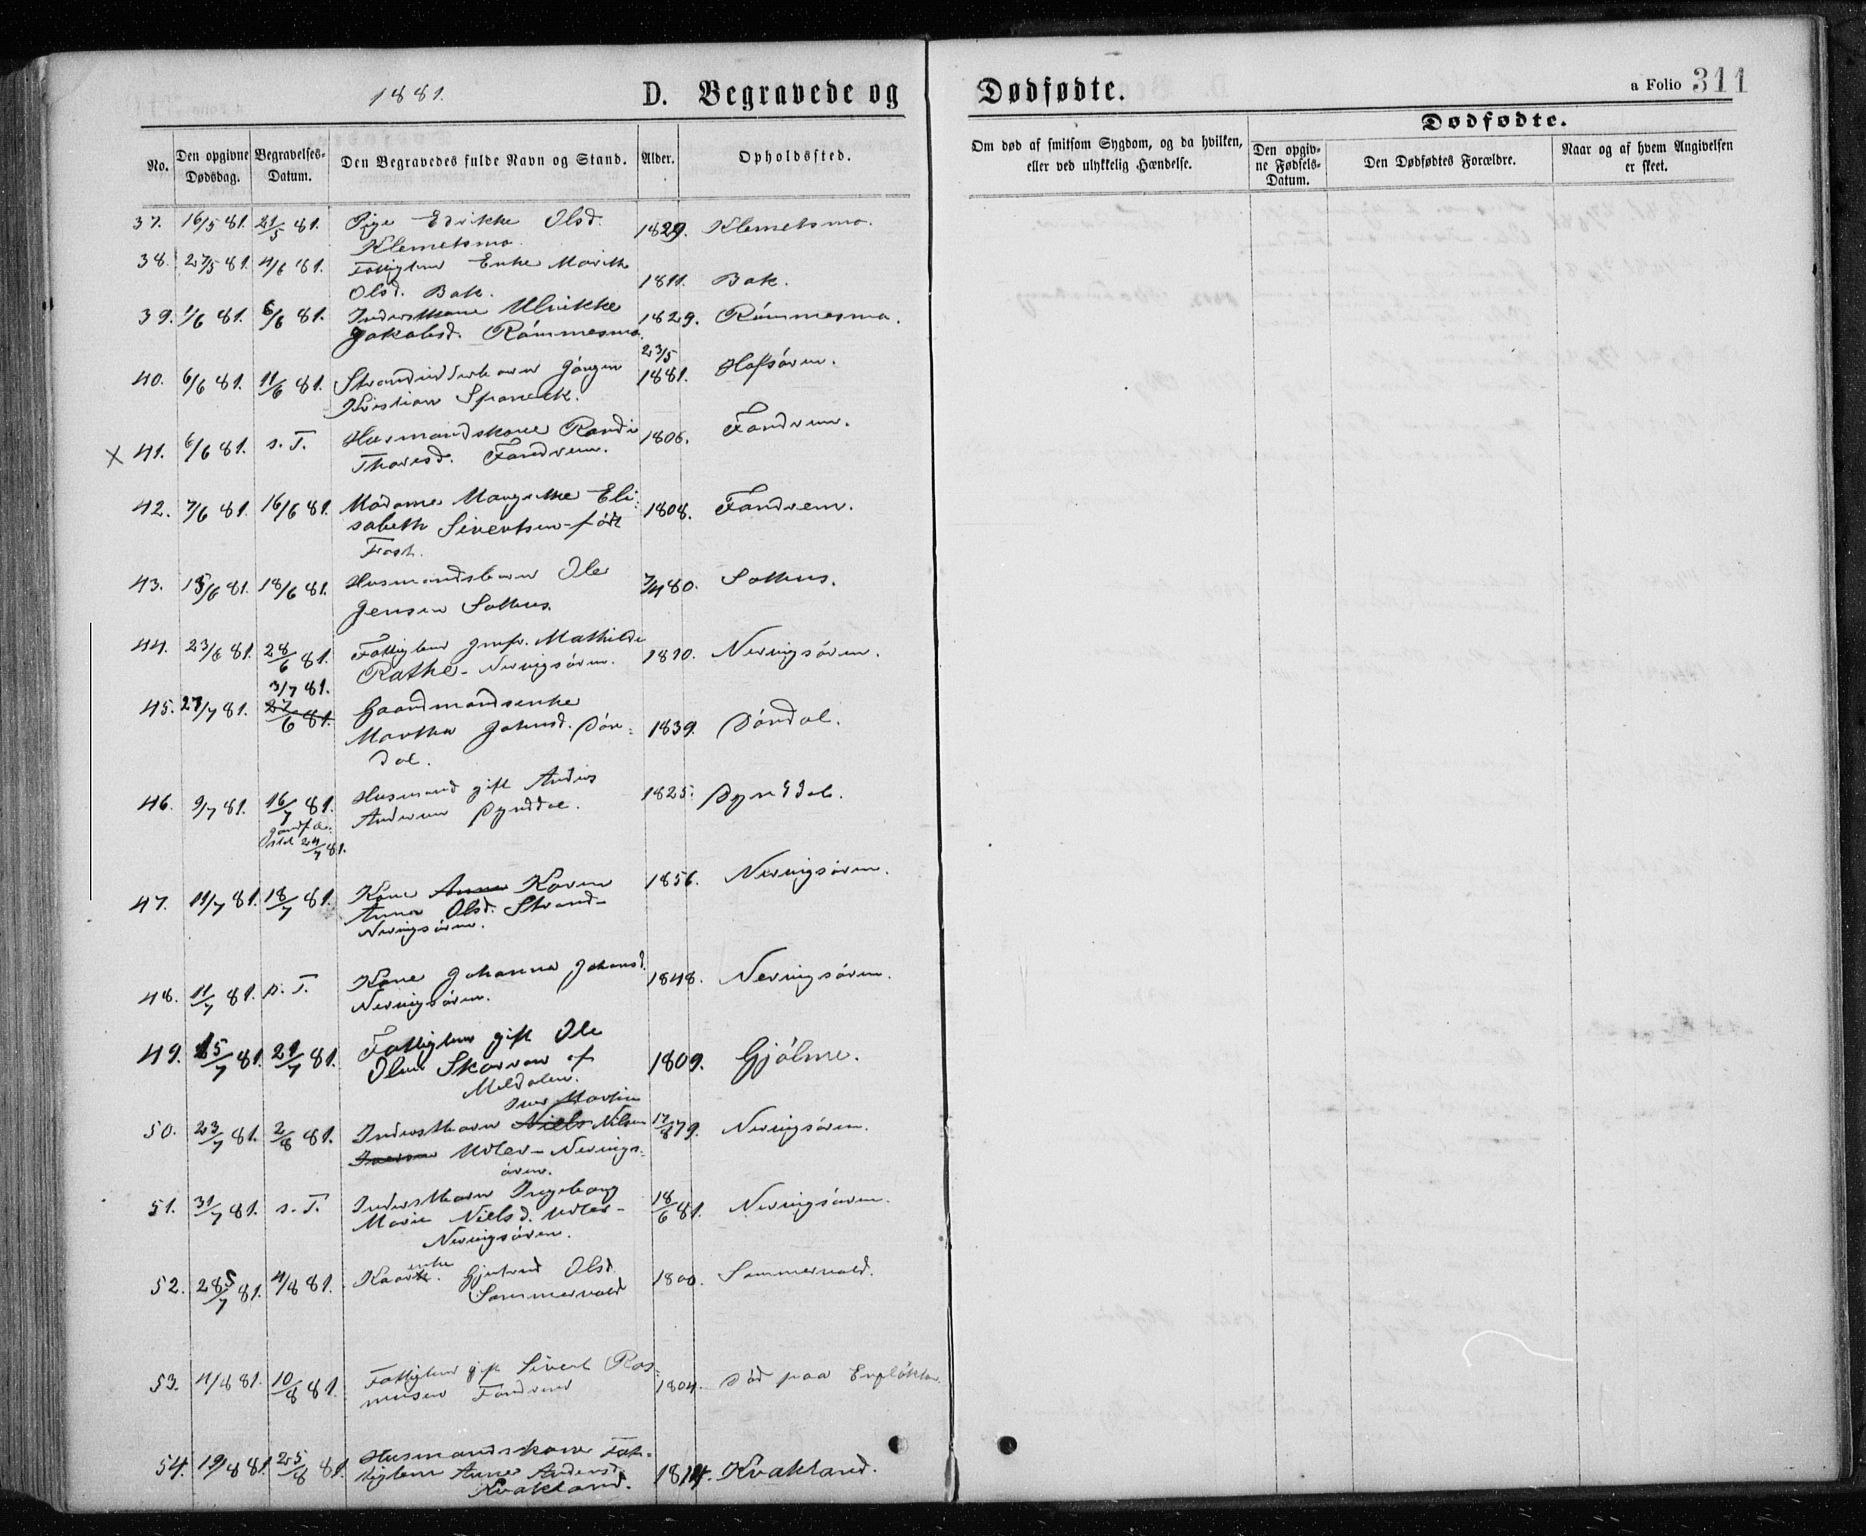 1881. D. Begravede og Dødfødte. a Folio 311
Dødfødte.
No. Den opgivne Dødsdag. Begravelses-Datum. Den Begravedes fulde Navn og Stand. Alder. Opholdssted. Om død af smitsom Sygdom, og da hvilken, eller ved ulykkelig Hændelse. Den opgivne Fødsels-Datum. Den Dødfødtes Forældre. Naar og af hvem Angivelsen er skeet.
37. 16/5 81. 21/5 81. Pige Edikke Olsd. 1829. Klemetsmo.
Klemetsmo.
38. 27/5 81. 4/6 81. Fattiglem Enke Marith
Olsd. Bak. 1811. Bak.
39. 1/6 81. 6/6 81. Inderstkone Ulrikke
Jakobsd. Rømmesmo. 1829. Rømmesmo.
23/5
40. 6/6 81. 11/6 81. Strandsidderbarn Jørgen 1881. Hofsøren.
Kristian Spaneck.
× 41. 6/6 81. s. T. Husmandskone Randi 1806. Fandrem.
Thoresd. Fandrem.
42. 7/6 81. 16/6 81. Madame Margrethe Eli- 1808. Fandrem.
sabeth Sivertsen - født
Frost.
43. 15/6 81. 18/6 81. Husmandsbarn Ole 7/4 80. Solhus.
Jensen Solhus.
44. 23/6 81. 28/6 81. Fattiglem Jmfr. Mathilde
Rathe - Nervigsøren. 1810. Nerviksøren.
3/7 81.
45. 27/7 81. 27/6 81. Gaardmandsenke
Martha Johnsd. Sør- 1839. Sørdal.
dal.
46. 9/7 81. 16/7 81. Husmand gift Anders 1825. Dyrddal.
Andersen Dyrddal.
Jordf. 24/7 81.
47. 11/7 81. 18/7 81. Kone Anne Karen 1856. Nerviksøren.
Anna Olsd. Strand-
Nervigsøren.
48. 11/7 81. s. T. Kone Johanna Johansd. 1848. Nervigsøren.
Nervigsøren.
49. 15/7 81. 21/7 81. Fattiglem gift Ole
Olsen Skarven af 1809. Gjølme.
Meldalen.
Iver Martin
50. 23/7 81. 2/8 81. Inderstbarn Niels Nilsen 17/8 79. Nervigsøren.
Iversen Udler - Nervigs-
øren.
51. 31/7 81. s. T. Inderstbarn Ingeborg 18/6 81. Nervigsøren.
Marie Nielsd. Udler -
Nervigsøren.
enke
52. 28/7 81. 4/8 81. Kaar Gjertrud Olsd. 1800. Sommervold.
Sommervold
53. 4/8 81. 10/8 81. Fattiglem gift Sivert Ras-
musen Fandrem 1804. Død paa Evjløkken
54. 19/8 81. 25/8 81. Husmandskone Fat-
tiglem Anne Andersd. 1814. Kvakland.
Kvakland.